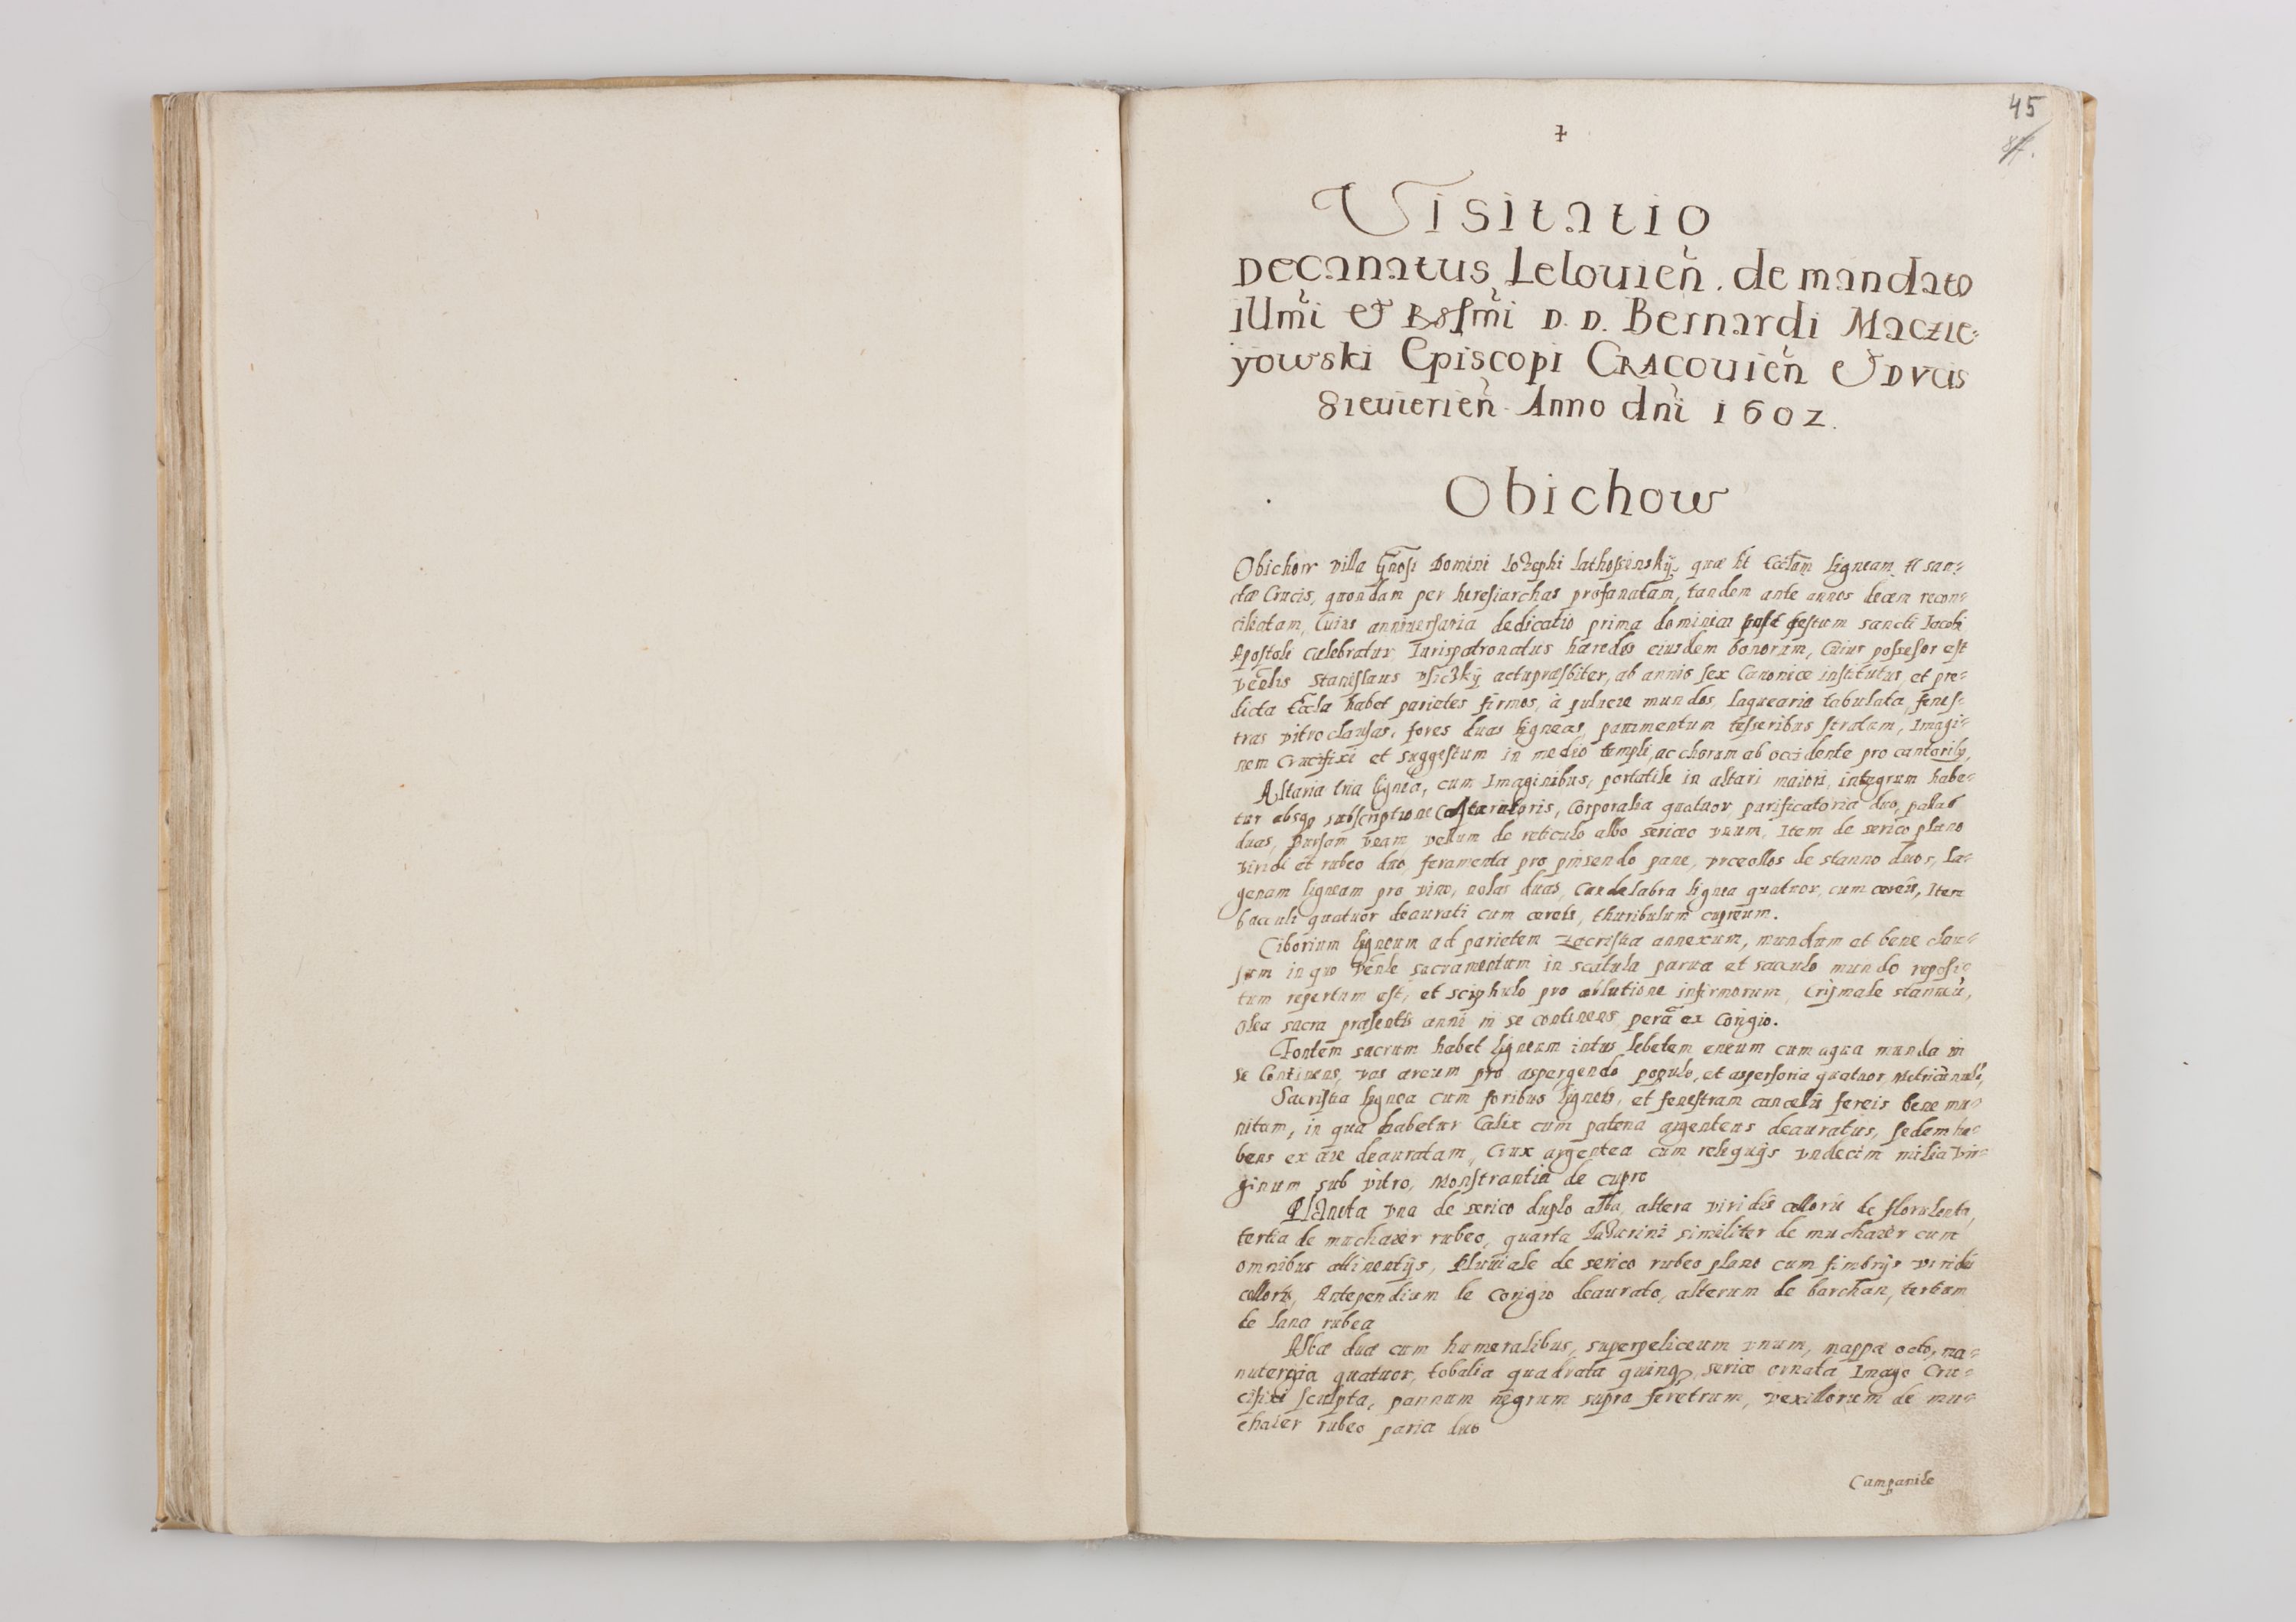 45
87.
‡
Visitatio
Decanatus Lelouien̄. de mandato
illm̄i & Rs̄smi D. D. Bernardi Maczie-
yowski Episcopi Cracouien̄ & Dvcis
Sieuierien̄. Anno dn̄i 1602.
Obichow
Obichow villa Gn̄osi Domini Iozephi Lathossinskÿ, quæ ht Eccl̄am ligneam tt san-
ctæ Crucis, quondam per heresiarchas profanatam, tandem ante annos decem recon-
ciliatam, Cuius anniuersaria dedicatio prima dominica post festum sancti Iacobi
Apostoli celebratur, Iurispatronatus hæredes eiusdem bonorum, Cuius possesor est
Stanislaus actupræsbiter, ab annis sex Canonice institutus, et pre-
dicta Eccl̄a habet parietes firmos, à puluere mundos, laquearia tabulata, fenes-
tras vitro clausas, fores duas ligneas, pauimentum tesseribus stratum, Imagi-
nem Crucifixi et suggestum in medio templi, ac chorum ab occidente pro cantoribʒ,
Altaria tria lignea, cum Imaginibus, portatile in altari maiori integrum habe-
tur absqʒ subscriptione Consecratoris, Corporalia quatuor, purificatoria duo, pallas
duas, Bursam vnam, vellum de reticulo albo sericeo vnum, Item de serico plano
viridi et rubeo duo, feramenta pro pinsendo pane, vrceollos de stanno duos, La-
genam ligneam pro vino, nolas duas, Candelabra lignea quatuor, cum cereis, Item
bacculi quatuor deaurati cum cereis, thuribulum cupreum.
Ciborium ligneum ad parietem Zacristia annexum, mundum et bene clau-
sum in quo Vēnle sacramentum in scatula parua et sacculo mundo reposi-
tum repertum est, et sciphulo pro ablutione infirmorum, Crismale stanneū,
olea sacra præsentis anni in se continens, pera ex Corigio.
Fontem sacrum habet ligneum intus lebetem eneum cum aqua munda in
se Continens, vas æreum pro aspergendo populo, et aspersoria quatuor,
Sacristia lignea cum foribus ligneis, et fenestram cancelis fereis bene mu-
nitam, in qua habetur Calix cum patena argenteus deauratus, sedem ha-
bens ex ære deauratam, Crux argentea cum reliquijs vndecim milia vir-
ginum sub vitro, Monstrantia de cupro
Planeta vna de serico duplo alba, altera viridis colloris de florulenta,
tertia de muchaier rubeo, quarta similiter de muchaier cum
omnibus attinentijs, Pluuiale de serico rubeo plano cum fimbrijs viridis
colloris, Antependium de Corigio deaurato, alterum de barchan, tertium
de lana rubea
Albæ duæ cum humeralibus, superpeliceum vnum, mappæ octo, ma-
nutergia quatuor, tobalia quadrata quinqʒ serico ornata, Imago Cru-
cifixi sculpta, pannum nigrum supra feretrum, vexillorum de mu-
chaier rubeo paria duo
Campanile